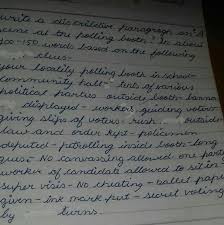 write a discriletive paragraph on "A
scene at the polling booth" in about
100-150 words based on the following
clues:-
your locality polling booth in school-
community hall - tents of various
political parties outside booth - banna
displayed - workers guiding voters
giving slips of voters - rush outside
law and order kept - policemen
deputed - patrolling inside booth - long
queue - No canvassing allowed one party
worker of candidate allowed to sit in
super visis - No cheating - ballet paper
given - ink mark put - secret voting
by turns.